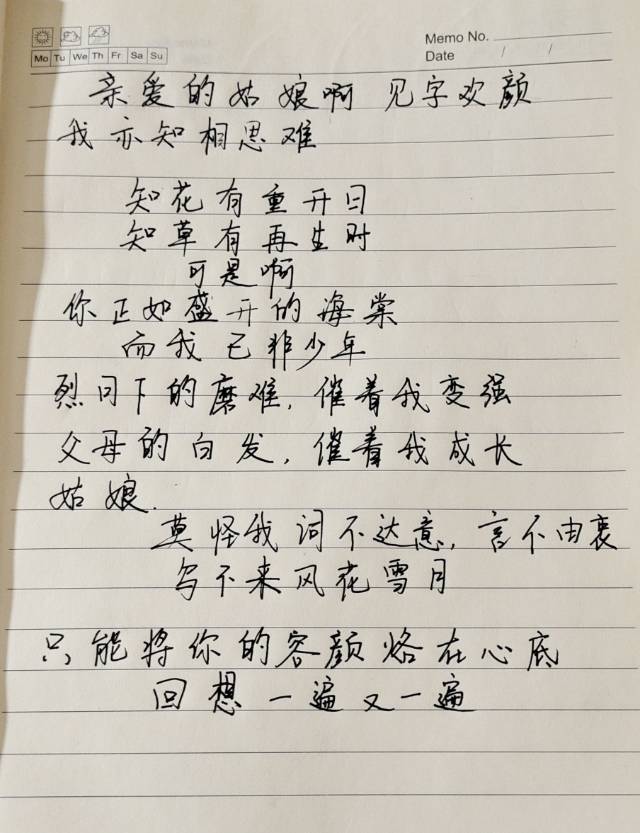 Mo Tu We Th Fr Sa Su
Memo No.
Date / /
亲爱的姑娘啊 见字欢颜
我亦知相思难
知花有重开日
知草有再生时
可是啊
你正如盛开的海棠
而我已非少年
烈日下的磨难,催着我变强
父母的白发,催着我成长
姑娘.
莫怪我词不达意,言不由衷
写不来风花雪月
只能将你的容颜烙在心底
回想一遍又一遍